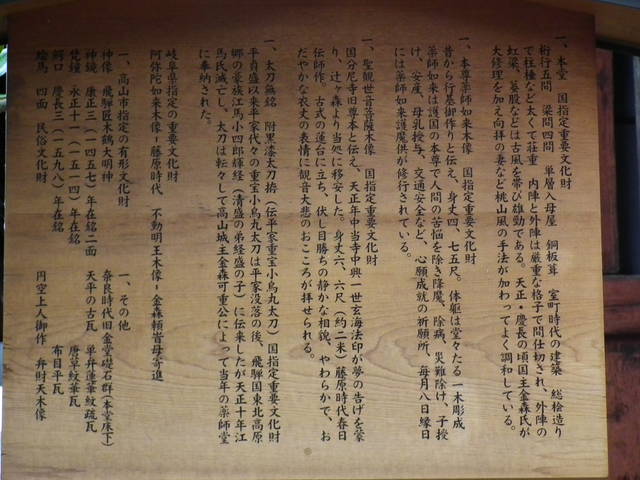 一、本堂　国指定重要文化財
桁行五間　梁間四間　単層入母屋　銅板葺　室町時代の建築　総桧造り
で柱極など太くて荘重　内陣と外陣は厳重な格子で間仕切され、外陣の
虹梁、蟇股などは古風を帯び雄勁である。天正・慶長の頃国主金森氏が
大修理を加え向拝の妻など桃山風の手法が加わってよく調和している。
一、本尊薬師如来木像　国指定重要文化財
昔から行基御作りと伝え、身丈四、七五尺。体躯は堂々たる一木彫成
薬師如来は護国の本尊で人間の苦悩を除き降魔、除病、災難除け、子授
け、安産、母乳授与、交通安全など、心願成就の祈願所、毎月八日縁日
には薬師如来護魔供が修行されている。
一、聖観世音菩薩木像　国指定重要文化財
国分尼寺旧尊本と伝え、天正年中当寺中興一世玄海法印が夢の告げを蒙
り、辻ヶ森より当処に移安した。身丈六、六尺（約二米）藤原時代春日
仏師作。古式の蓮台に立ち、伏し目勝ちの静かな相貌、やわらかで、お
だやかな衣丈の表情に観音大悲のおこころが拝せられる。
一、太刀無銘　附黒漆太刀拵（伝平家重宝小烏丸太刀）国指定重要文化財
平貞盛以来平家代々の重宝小烏丸太刀は平家没落の後、飛騨国東北高原
郷の豪族江馬小四郎輝経（清盛の弟経盛の子）に伝来したが天正十年江
馬氏滅亡し、太刀は転々して高山城主金森可重公によって当年の薬師堂
に奉納された。
岐阜県指定の重要文化財
阿弥陀如来木像・藤原時代　不動明王木像・金森頼旹母寄進
一、高山市指定の有形文化財
神像　飛騨匠木鶴大明神
神鏡　康正三（一四五七）年在銘二面
梵鐘　永正十一（一五一四）年在銘
鰐口　慶長三（一五九八）年在銘
絵馬　四面　民俗文化財
一、その他
奈良時代旧金堂礎石群（本堂床下）
天平の古瓦　単弁蓮華紋疏瓦
唐草紋華瓦
布目平瓦
円空上人御作　弁財天木像